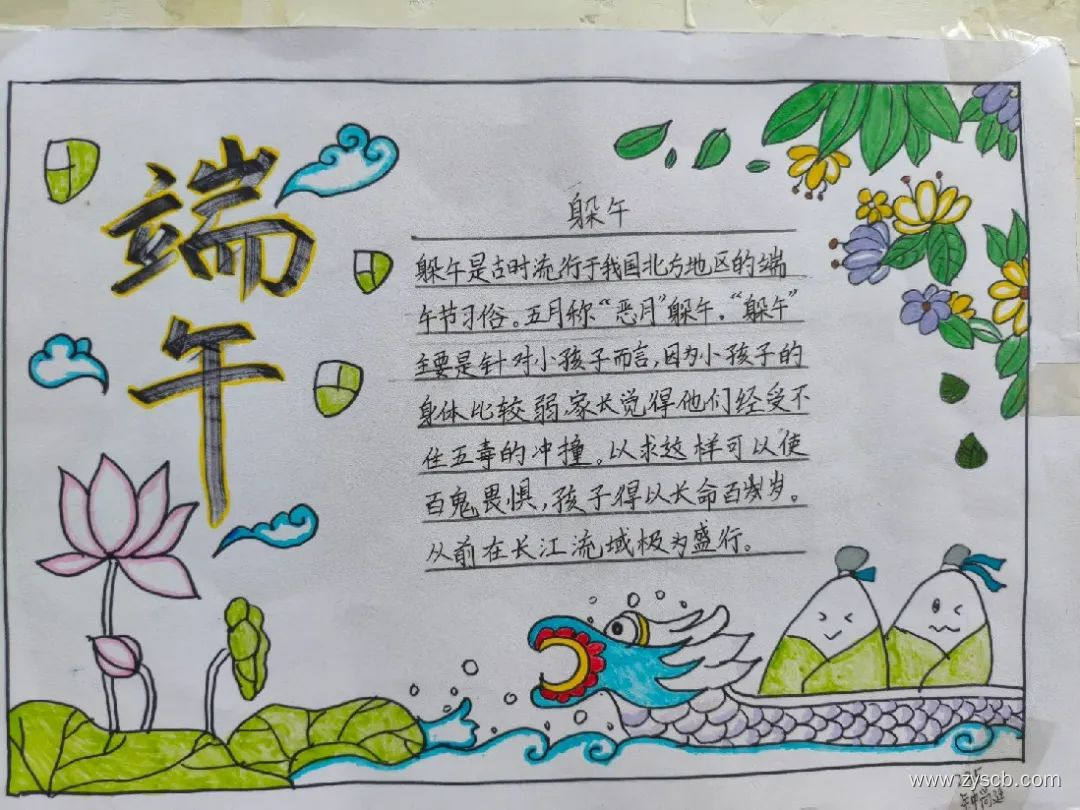 端
午
躲午
躲午是古时流行于我国北方地区的端
午节习俗。五月称“恶月”躲午，“躲午”
主要是针对小孩子而言,因为小孩子的
身体比较弱,家长觉得他们经受不
住五毒的冲撞。以求这样可以使
百鬼畏惧,孩子得以长命百岁岁。
从前在长江流域极为盛行。
www.zyscb.com